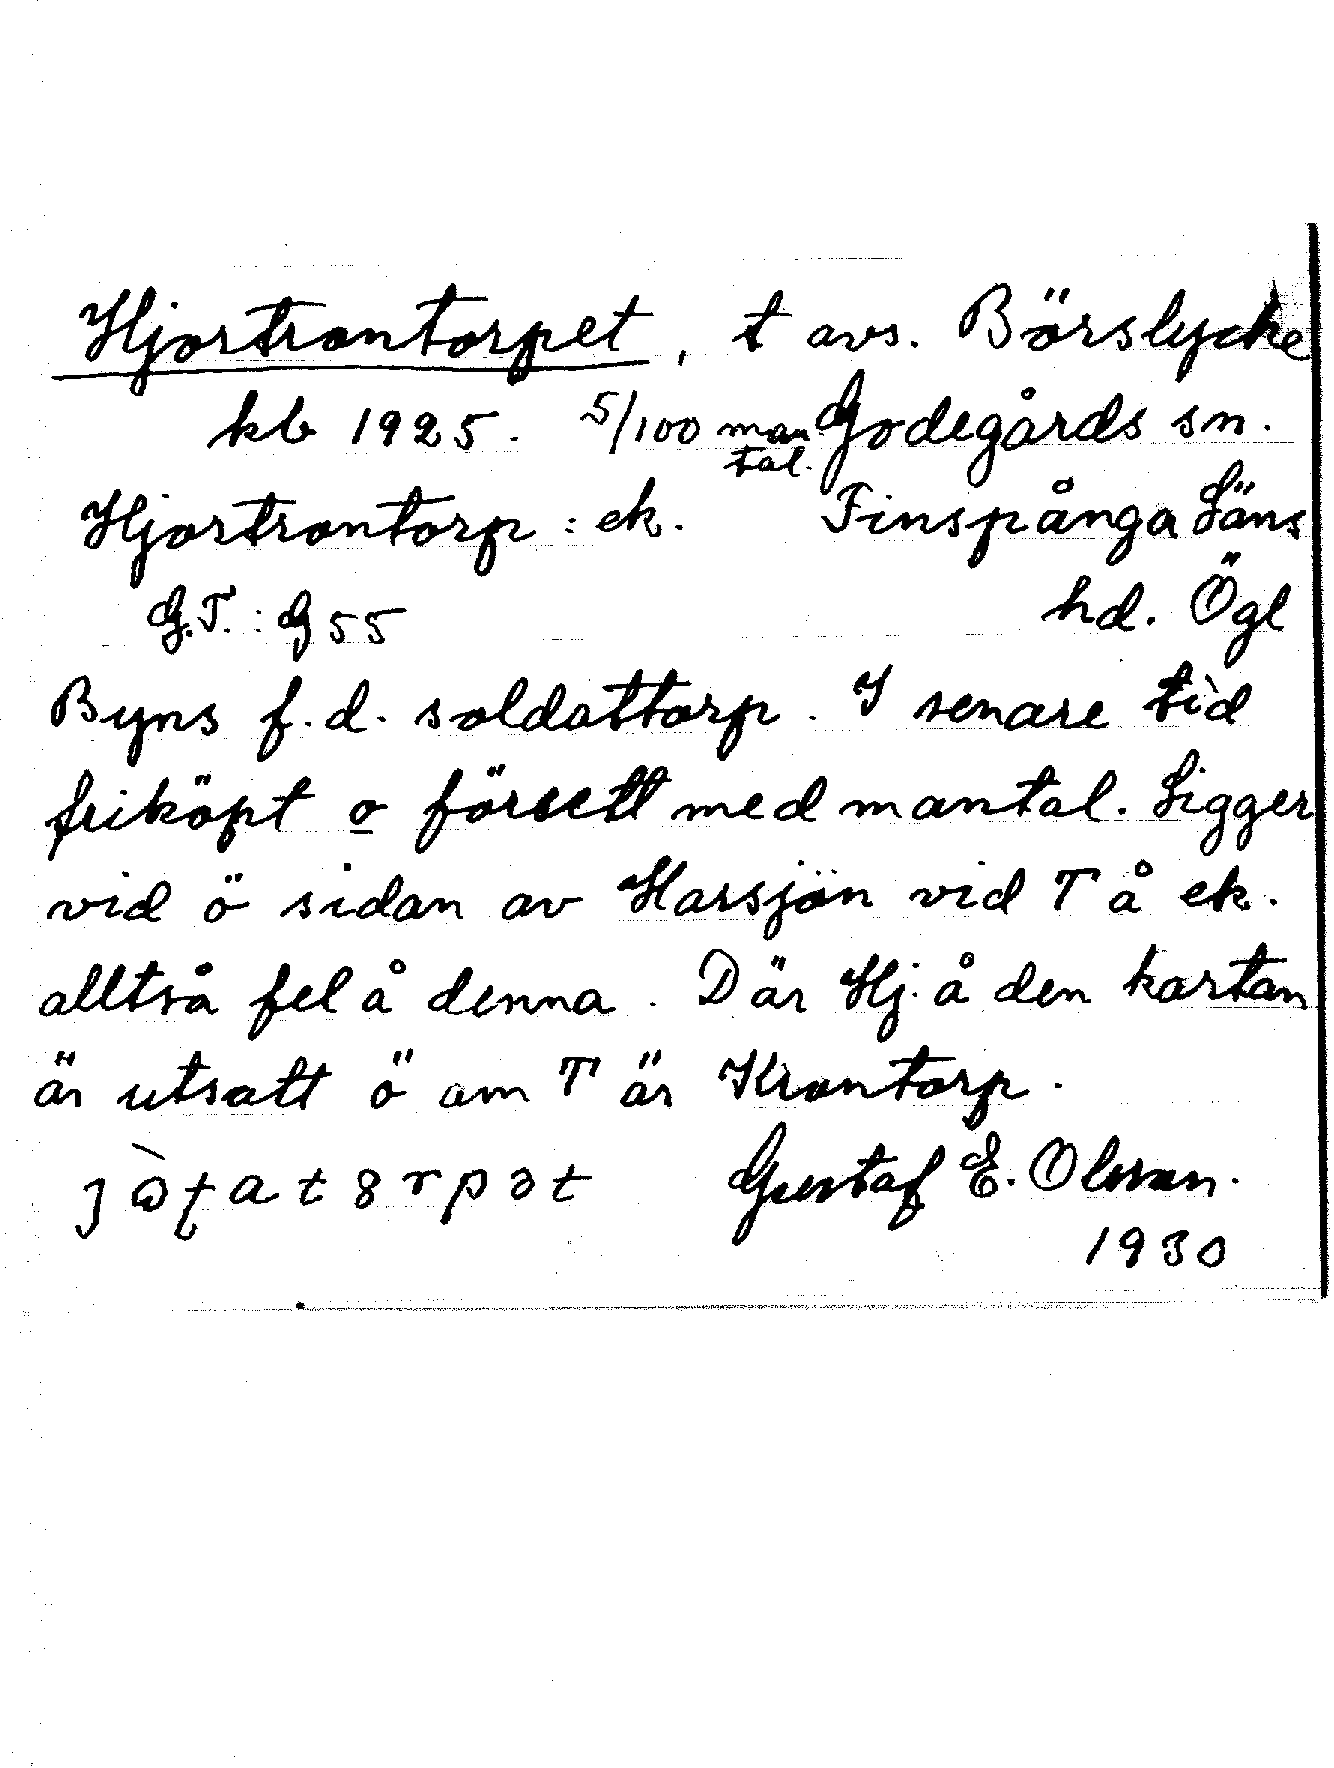 Hjortrontorpet, t avs. Börslycke
kb 1925. 5/100 mantal. Godegårds sn.
Hjortrontorp : ek. Finspånga Läns
G.T. : G 55 hd. Ögl
Byns f.d. soldattorp. I senare tid
friköpt o försett med mantal. Ligger
vid ö sidan av Harsjön vid T å ek.
alltså fel å denna. Där Hj. å den kartan
är utsatt ö om T är Krontorp.
Gustaf E. Olsson.
1930